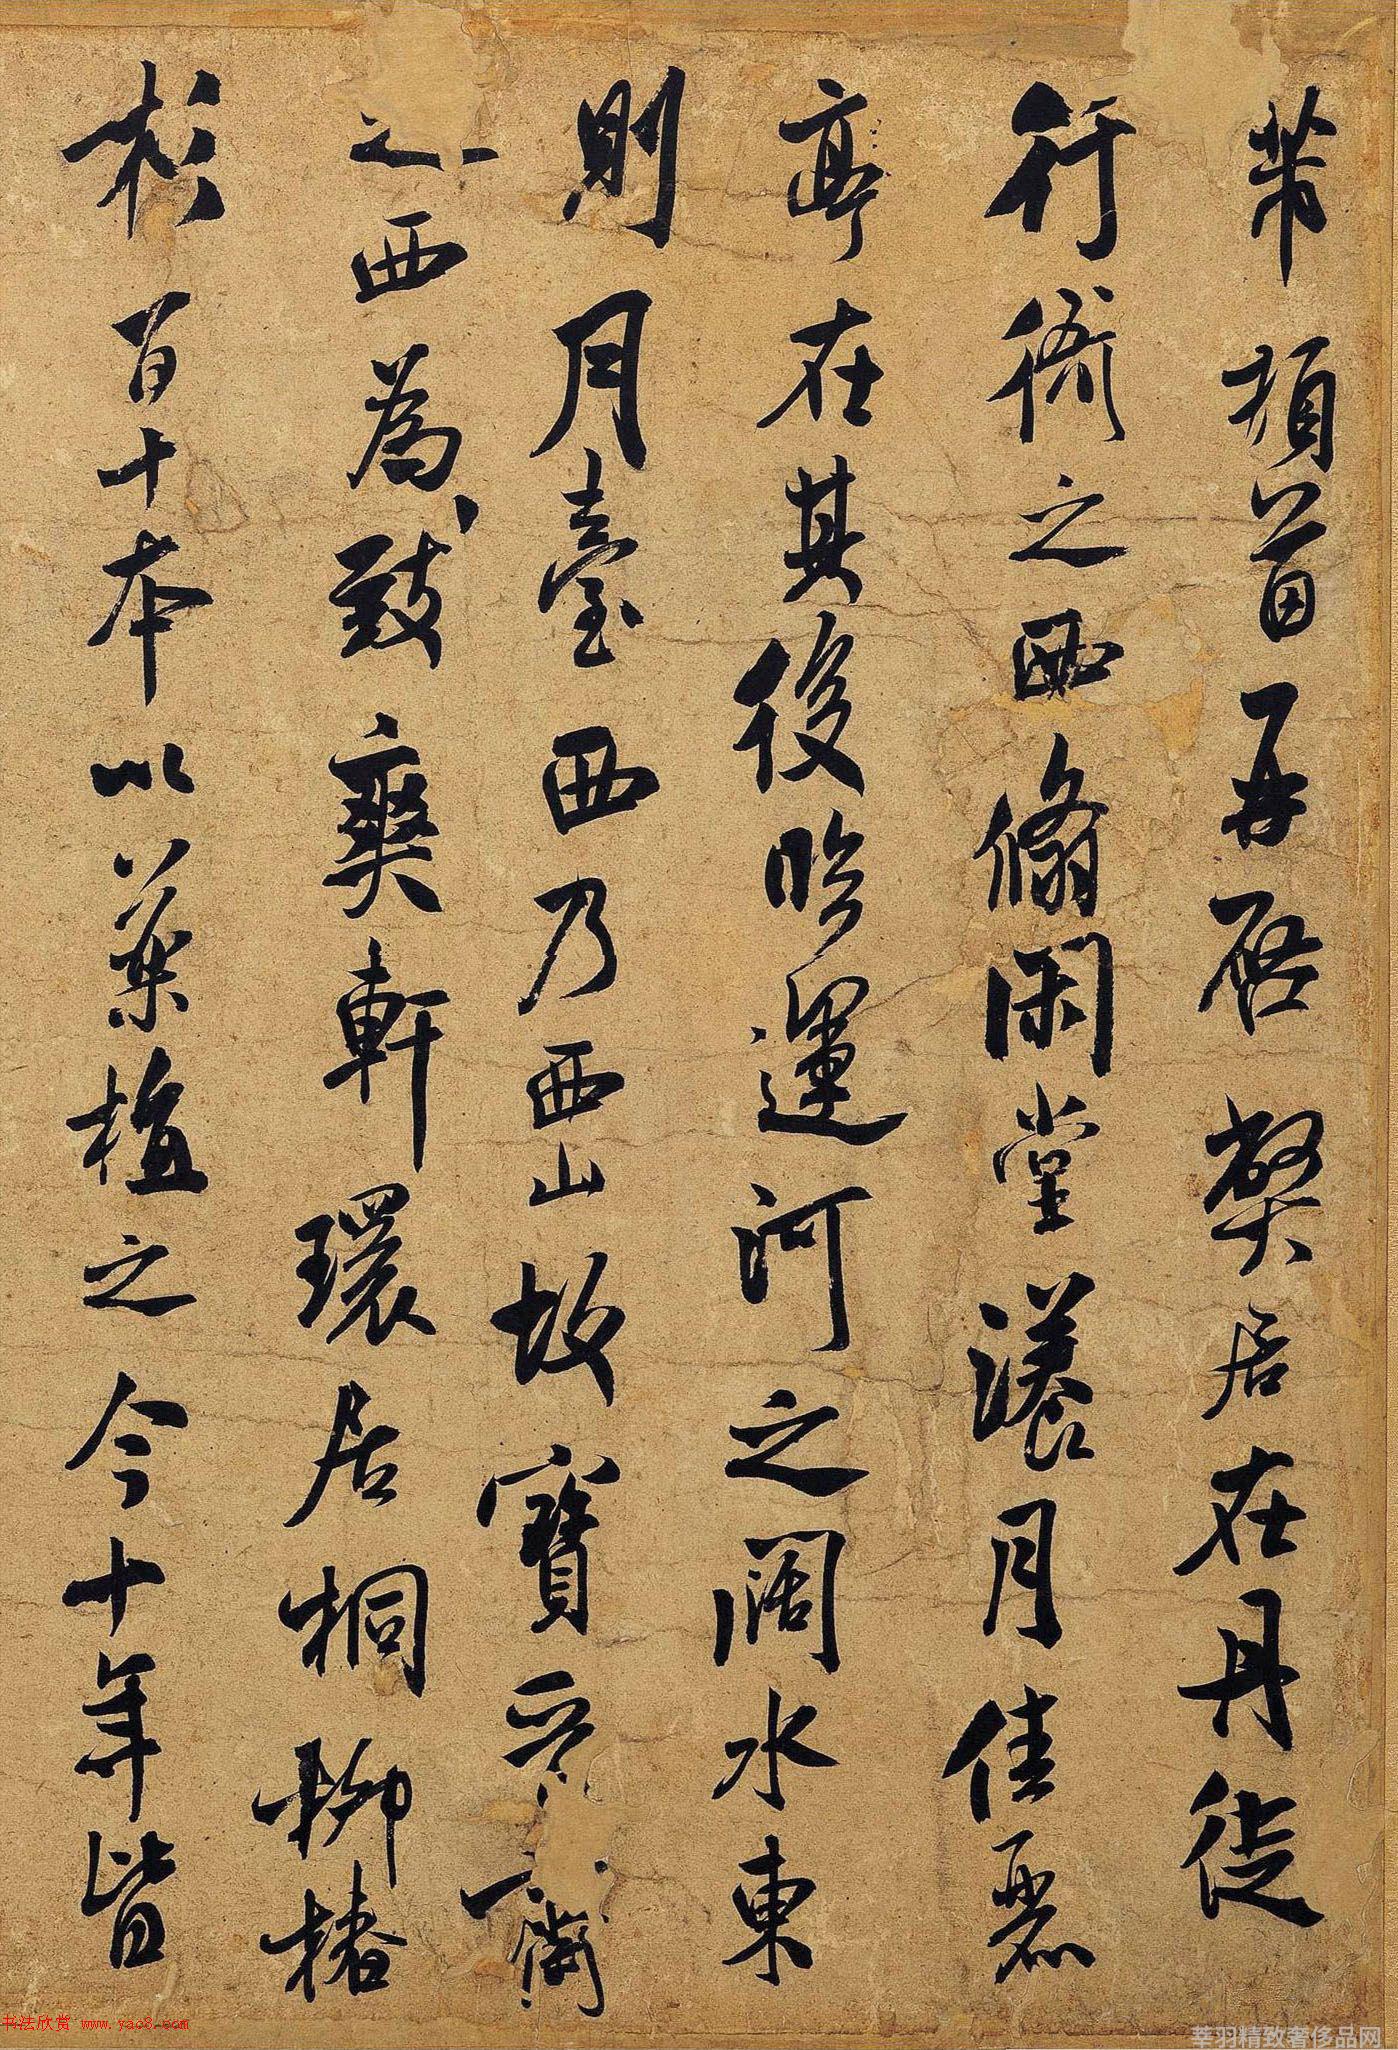 芾頓首再启弊居在丹徒
行衙之西翛閑堂漾月佳麗
亭在其後臨運河之闊水東
則月臺西乃西山故寶晉齋
之西為致爽軒環居桐柳椿
杉百十本以藥植之今十年皆
书法欣赏 www.yac8.com
莘羽精致奢侈品网